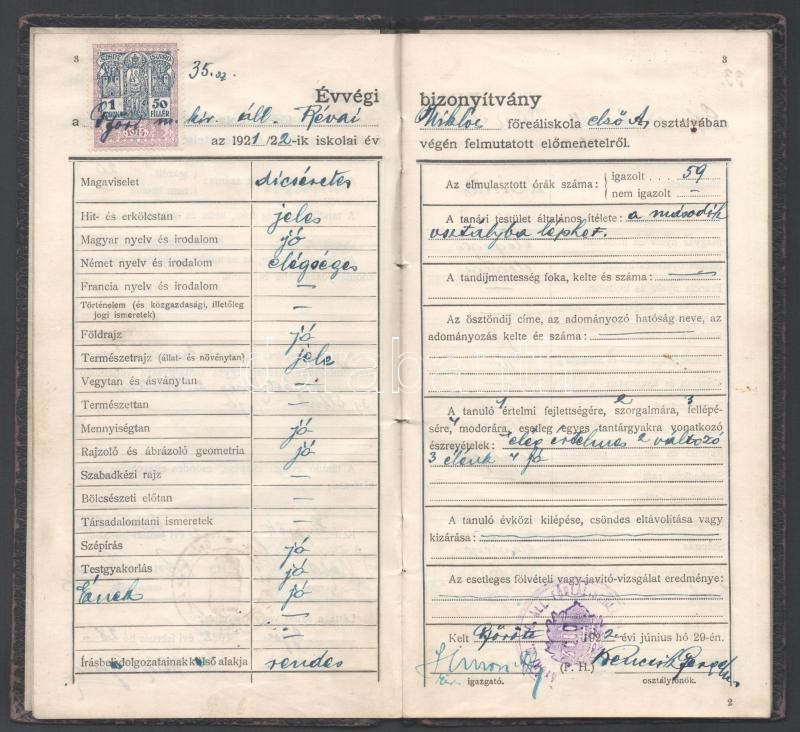 3
35. sz.
1 50
KORONA FILLÉR
1914
Évvégi
a Győri m. kir. áll. Révai
az 1921/22-ik iskolai év
Magaviselet dicséretes
Hit- és erkölcstan jeles
Magyar nyelv és irodalom jó
Német nyelv és irodalom elégséges
Francia nyelv és irodalom —
Történelem (és közgazdasági, illetőleg
jogi ismeretek) —
Földrajz jó
Természetrajz (állat- és növénytan) jele
Vegytan és ásványtan —
Természettan —
Mennyiségtan jó
Rajzoló és ábrázoló geometria jó
Szabadkézi rajz —
Bölcsészeti előtan —
Társadalomtani ismeretek —
Szépírás jó
Testgyakorlás jó
Ének jó
—
—
Írásbeli dolgozatainak külső alakja rendes
3
bizonyítvány
Miklos főreáliskola első A osztályában
végén felmutatott előmenetelről.
Az elmulasztott órák száma: igazolt . . . 59
nem igazolt —
A tanári testület általános ítélete: a második
osztályba léphet.
A tandíjmentesség foka, kelte és száma: —
Az ösztöndíj címe, az adományozó hatóság neve, az
adományozás kelte és száma:
A tanuló 1 értelmi fejlettségére, 2 szorgalmára, 3 fellépé-
sére, 4 modorára, esetleg egyes tantárgyakra vonatkozó
észrevételek: 1 elég értelmes 2 változó
3 élénk 4 jó
A tanuló évközi kilépése, csöndes eltávolítása vagy
kizárása:
Az esetleges fölvételi vagy javító-vizsgálat eredménye:
Kelt Győrött 1922 évi június hó 29-én.
(P. H.)
igazgató. osztályfőnök.
2
darabanth